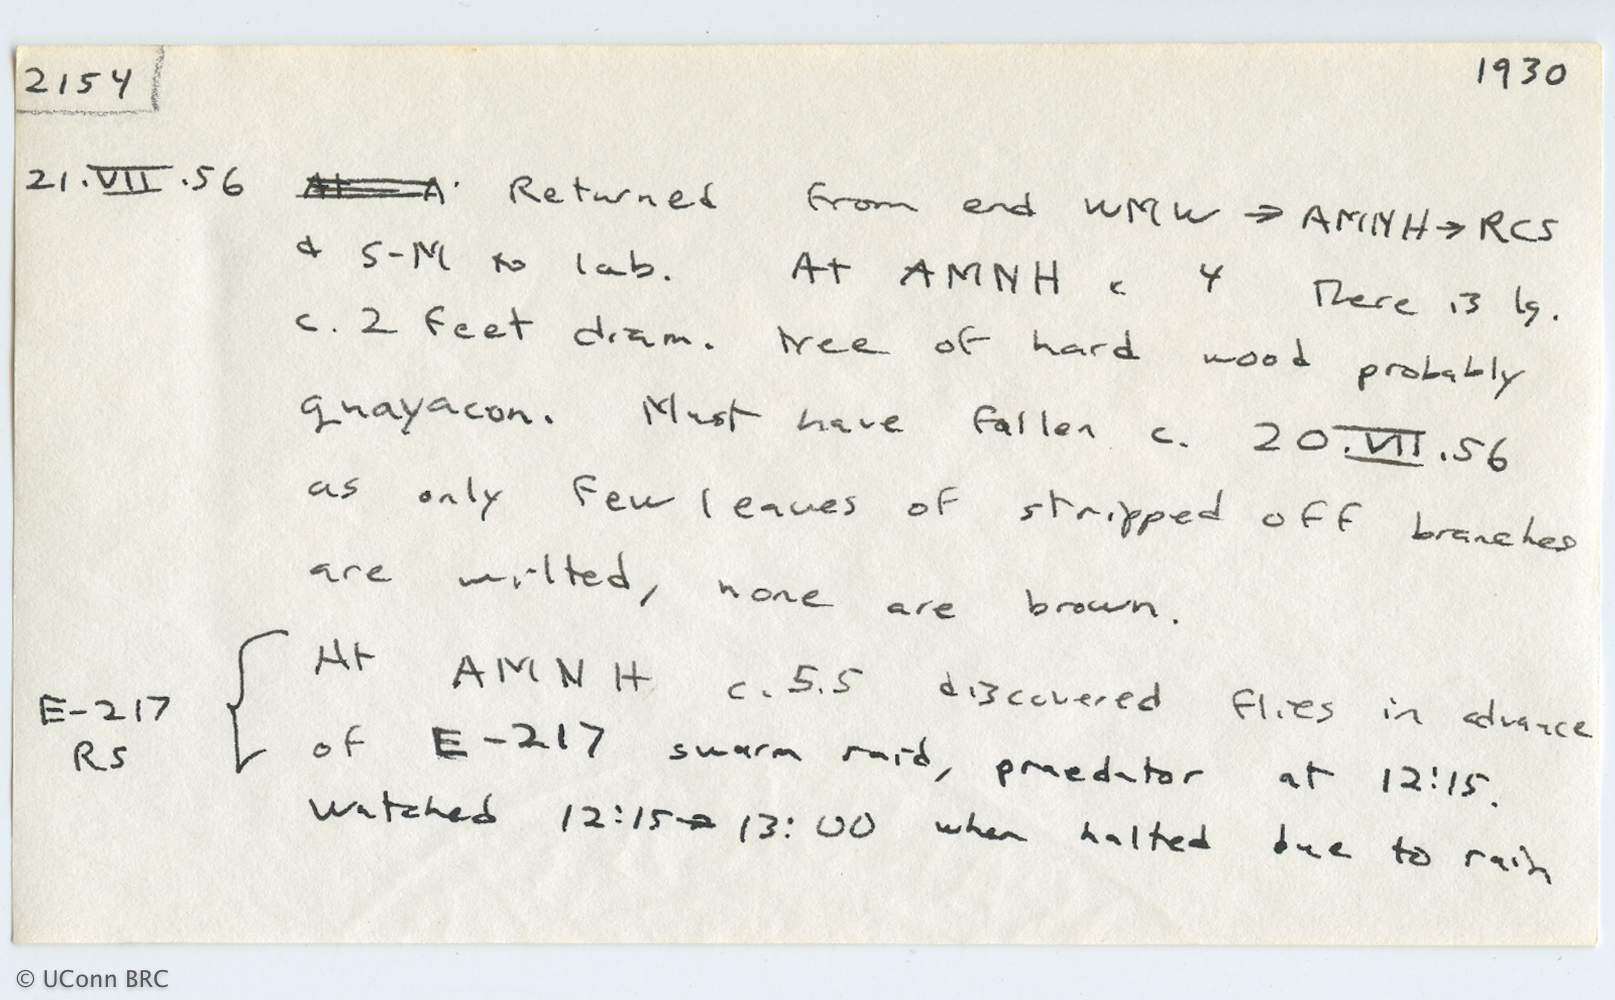 2154
1930
21.VII.56 Returned from end WMW → AMNH → RCS
& S-M to lab. At AMNH c 4 There is lg.
c. 2 feet diam. tree of hard wood probably
guayacon. Must have fallen c. 20.VII.56
as only few leaves of stripped off branches
are wilted, none are brown.
At AMNH c. 5.5 discovered flies in advance
E-217 of E-217 swarm raid, praedator at 12:15.
RS
Watched 12:15 → 13:00 when halted due to rain
© UConn BRC